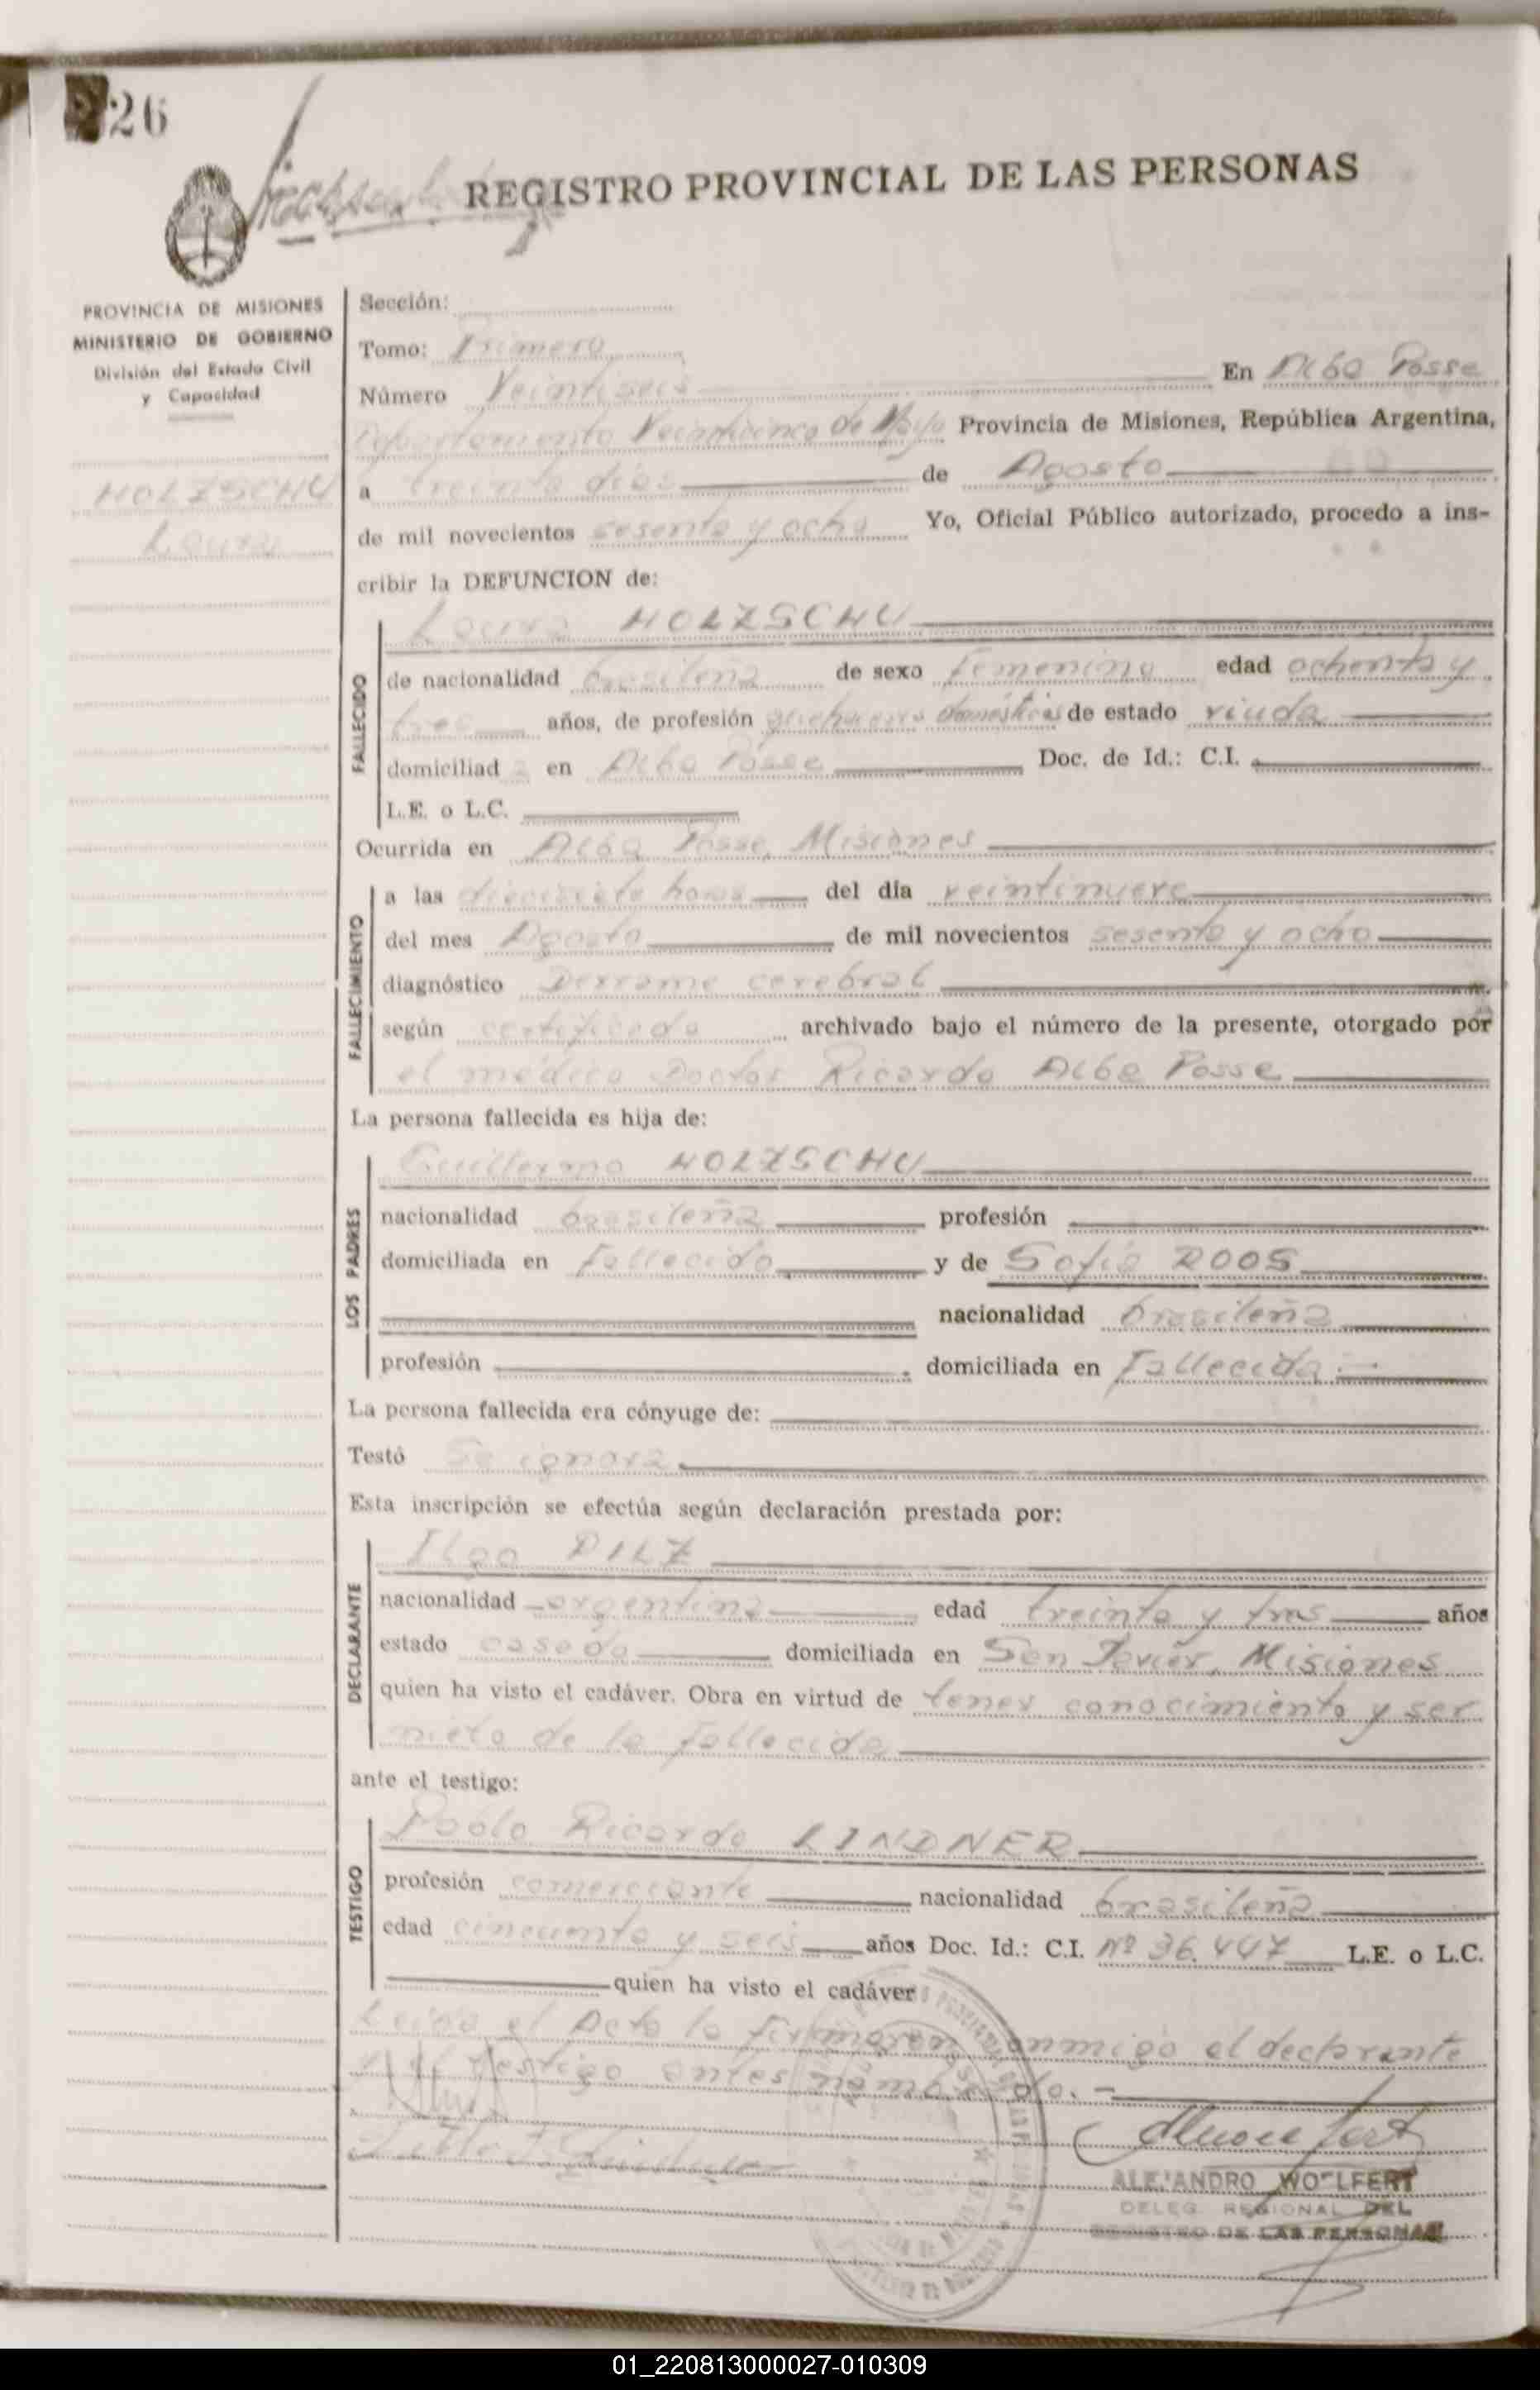 26
REGISTRO PROVINCIAL DE LAS PERSONAS
PROVINCIA DE MISIONES
MINISTERIO DE GOBIERNO
División del Estado Civil
y Capacidad
HOLZSCHU
Laura
Sección:
Tomo: Primero
Número Veintiseis En Alba Posse
Departamento Veinticinco de Mayo Provincia de Misiones, República Argentina,
a treinta días de Agosto
de mil novecientos sesenta y ocho Yo, Oficial Público autorizado, procedo a ins-
cribir la DEFUNCION de:
FALLECIDO
Laura HOLZSCHU
de nacionalidad brasileña de sexo femenino edad ochenta y
tres años, de profesión quehaceres domésticos de estado viuda
domiciliad a en Alba Posse Doc. de Id.: C.I.
L.E. o L.C.
Ocurrida en Alba Posse, Misiones
FALLECIMIENTO
a las diecisiete horas del día veintinueve
del mes Agosto de mil novecientos sesenta y ocho
diagnóstico Derrame cerebral
según certificado archivado bajo el número de la presente, otorgado por
el médico Doctor Ricardo Alba Posse
La persona fallecida es hija de:
LOS PADRES
Guillermo HOLZSCHU
nacionalidad brasileña profesión
domiciliada en Fallecido y de Sofia ROOS
nacionalidad brasileña
profesión . domiciliada en Fallecida.-
La persona fallecida era cónyuge de:
Testó Se ignora
Esta inscripción se efectúa según declaración prestada por:
DECLARANTE
PILZ
nacionalidad argentina edad treinta y tres años
estado casado domiciliada en San Javier, Misiones
quien ha visto el cadáver. Obra en virtud de tener conocimiento y ser
nieto de la fallecida
ante el testigo:
TESTIGO
Pablo Ricardo LINDNER
profesión comerciante nacionalidad brasileña
edad cincuenta y seis años Doc. Id.: C.I. Nº 36.447 L.E. o L.C.
quien ha visto el cadáver
Leída el Acta la firmaron conmigo el declarante
y el testigo antes nombrado.-
ALEJANDRO WOLFERT
DELEG. REGIONAL DEL
REGISTRO DE LAS PERSONAS
01_220813000027-010309